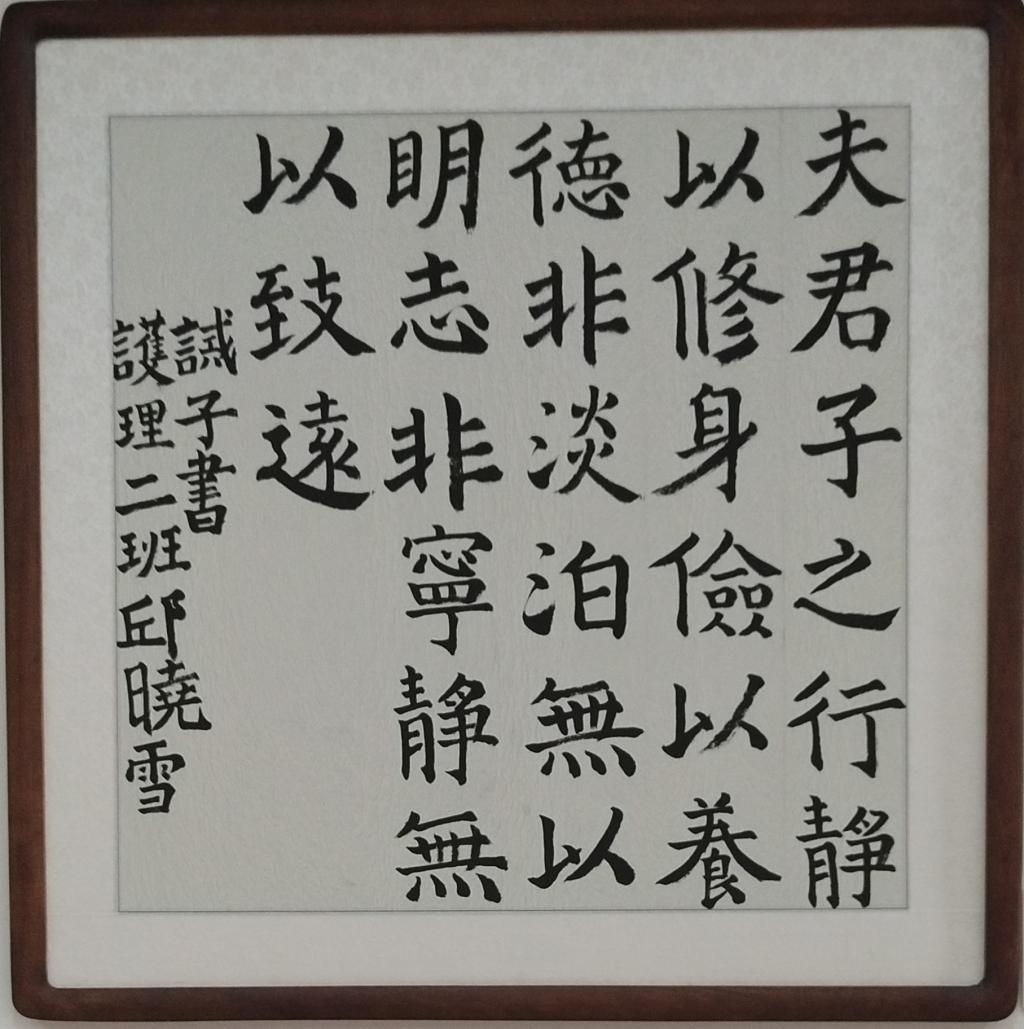 夫君子之行静
以修身儉以養
德非淡泊無以
明志非寧静無
以致遠
誡子書
護理二班邱曉雪